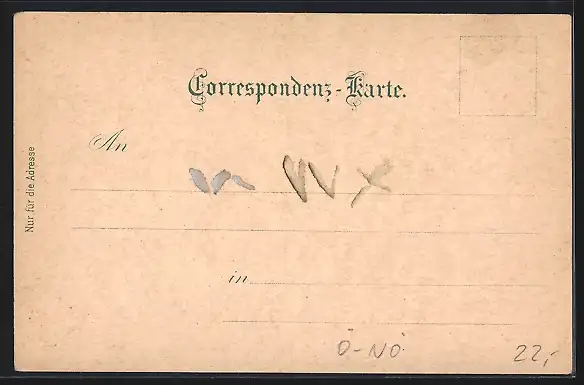 Correspondenz-Karte.
An
Nur für die Adresse
in
Ö-NÖ
22,-